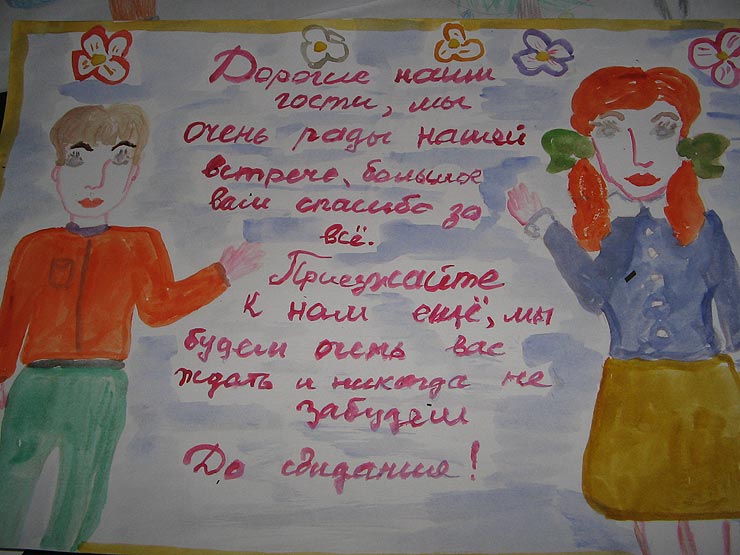 Дорогие наши
гости, мы
очень рады нашей
встрече, большое
вам спасибо за
всё.
Приезжайте
к нам ещё, мы
будем очень вас
ждать и никогда не
забудем
До свидания!